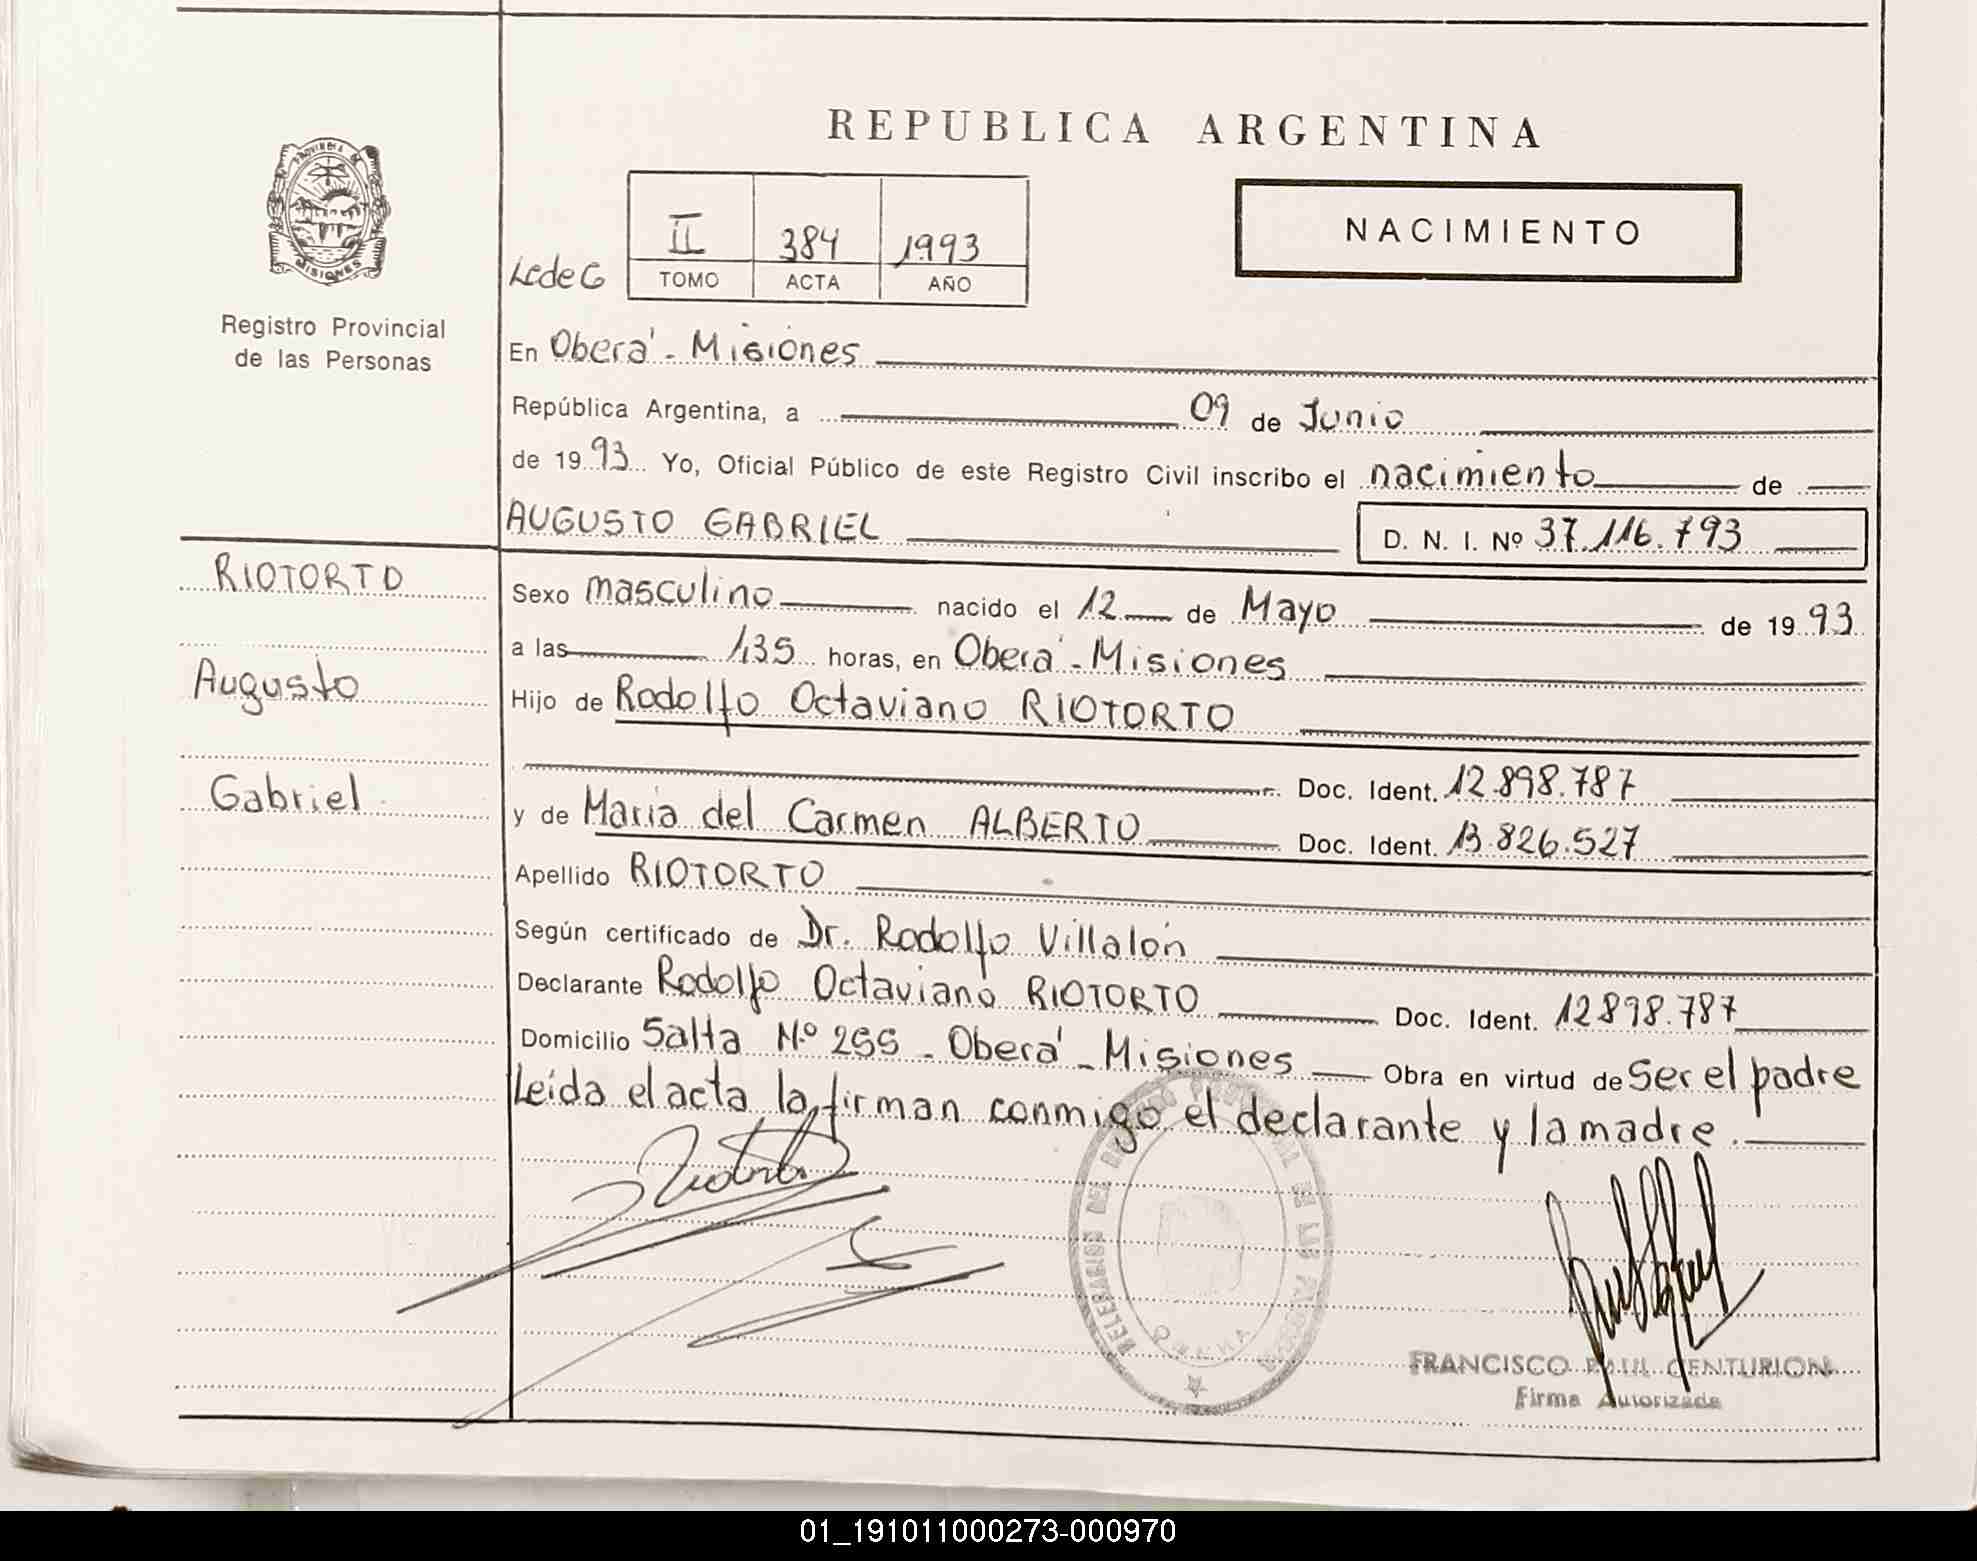 REPUBLICA ARGENTINA
PROVINCIA DE
MISIONES
Registro Provincial
de las Personas
NACIMIENTO
II 384 1993
TOMO ACTA AÑO
En Oberá - Misiones
República Argentina, a 09 de Junio
de 1993 Yo, Oficial Público de este Registro Civil inscribo el nacimiento de
AUGUSTO GABRIEL D. N. I. Nº 37.116.793
RIOTORTO
Augusto
Gabriel
Sexo masculino nacido el 12 de Mayo de 1993
a las 1,35 horas, en Oberá - Misiones
Hijo de Rodolfo Octaviano RIOTORTO
Doc. Ident. 12.898.787
y de María del Carmen ALBERTO Doc. Ident. 13.826.527
Apellido RIOTORTO
Según certificado de Dr. Rodolfo Villalón
Declarante Rodolfo Octaviano RIOTORTO Doc. Ident. 12898.787
Domicilio Salta Nº 255 - Oberá - Misiones Obra en virtud de Ser el padre
Leída el acta la firman conmigo el declarante y la madre.
FRANCISCO RAUL CENTURION
Firma Autorizada
01_191011000273-000970